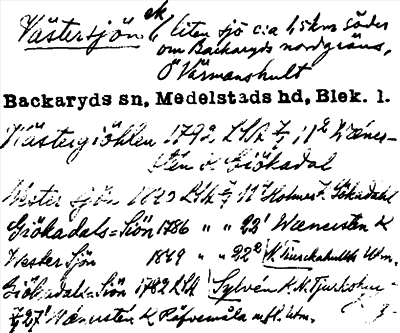 Västersjön ek, liten sjö c:a 4,5 km söder
om Backaryds nordgräns,
Ö Värmanshult
Backaryds sn, Medelstads hd, Blek. l.
Wästergiöhlen 1792 LSA 7/11² Wænes-
tén K Giökadal
Wester Sjön LSA Holmer K Gökadahl
Giökadals=Siön 1786 " " 22¹ Wænestén K
Wester Sjön 1849 " " 22² N. Tjurkahult Utm.
Giökadals=Siön 1782 LSA Sylvén K N. Tjurkahu-
7:27¹ Wænestén K Räfvemåla m.fl. Utm.